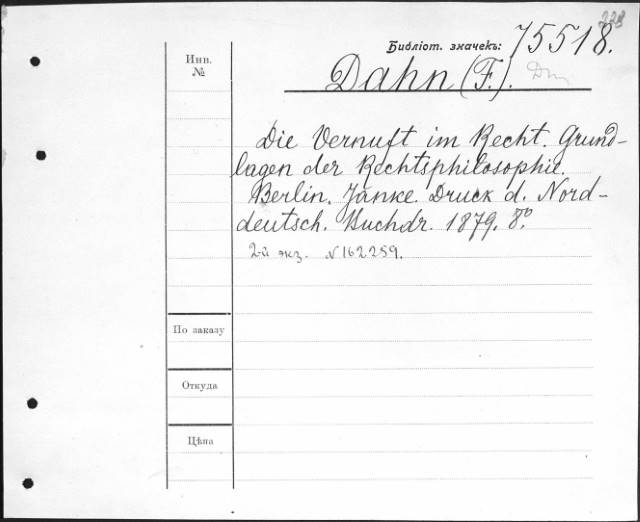 228
Библіот. значекъ: 75518.
Инв.
№
Dahn (F.).
Die Vernuft im Recht. Grund-
lagen der Rechtsphilosophie.
Berlin, Janke. Druck d. Nord-
deutsch. Buchdr. 1879. 8°.
2-й экз. № 162259.
По заказу
Откуда
Цѣна